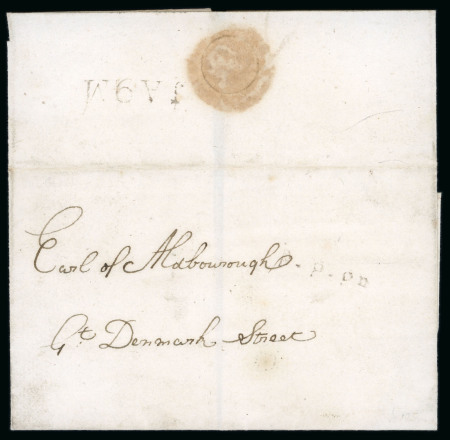 Earl of Aldbourough.
Gt. Denmark Street